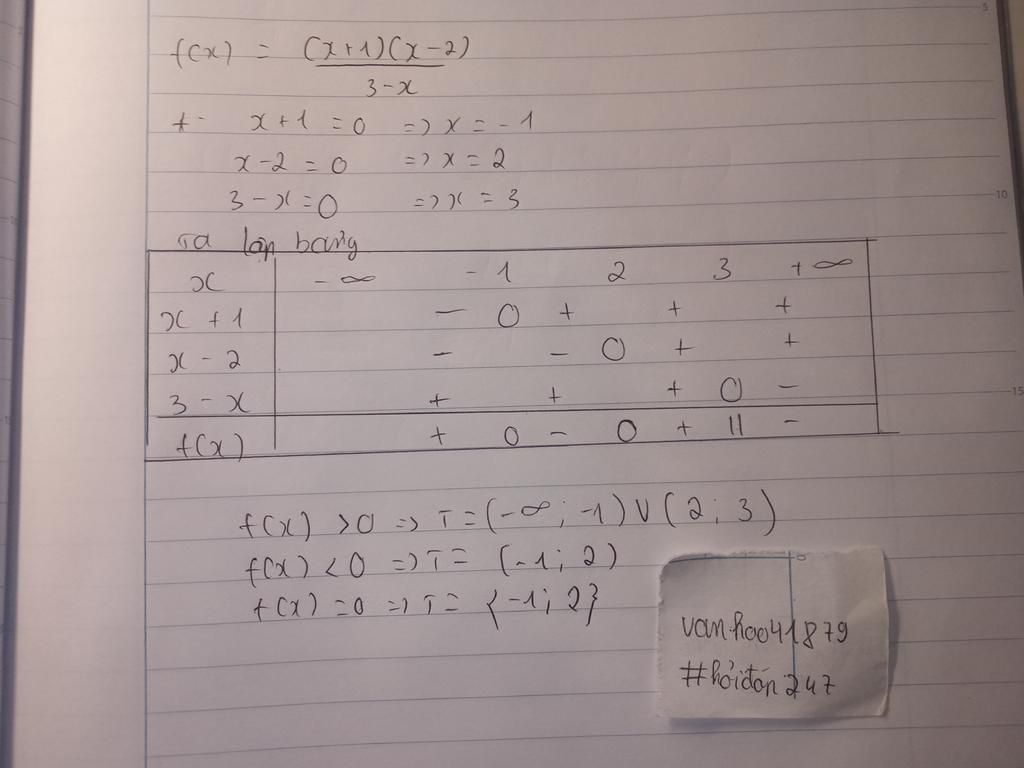 f(x) = (x+1)(x-2)
3-x
+ x+1 = 0 => x = -1
x-2 = 0 => x = 2
3-x = 0 => x = 3
Ta lập bảng
x -∞ -1 2 3 +∞
x+1 - 0 + + +
x-2 - - 0 + +
3-x + + + 0 -
f(x) + 0 - 0 + || -
f(x) > 0 => T = (-∞; -1) ∪ (2; 3)
f(x) < 0 => T = (-1; 2)
f(x) = 0 => T = {-1; 2}
vanhoo41879
#hỏiđáp247
5
10
15